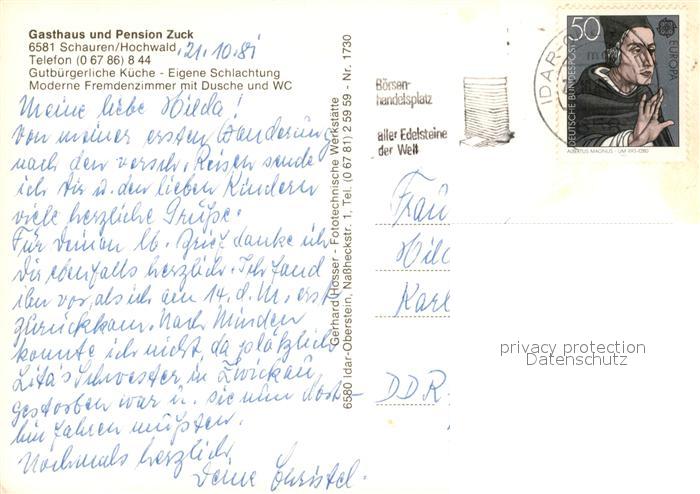 Gasthaus und Pension Zuck
6581 Schauren/Hochwald
Telefon (0 67 86) 8 44
Gutbürgerliche Küche - Eigene Schlachtung
Moderne Fremdenzimmer mit Dusche und WC
21.10.81
Meine liebe Hilda!
Von meiner ersten Wanderung
nach den versch. Reisen sende
ich Dir u. den lieben Kindern
viele herzliche Grüße.
Für Deinen lb. Brief danke ich
Dir ebenfalls herzlich. Ich fand
ihn vor, als ich am 14. d. M. erst
zurückkam. Nach Minden
konnte ich nicht, da plötzlich
Lita's Schwester in Zwickau
gestorben war u. sie nun dort-
hin fahren mußten.
Nochmals herzlich
Deine Christel.
Gerhard Hosser - Fototechnische Werkstätte
6580 Idar-Oberstein, Naßheckstr. 1, Tel. (0 67 81) 2 59 59 - Nr. 1730
Börsen-
handelsplatz
aller Edelsteine
der Welt
IDAR-O
50
DEUTSCHE BUNDESPOST
EUROPA
ALBERTUS MAGNUS · UM 1193-1280
Frau
Hild
Karl
DDR.
privacy protection
Datenschutz